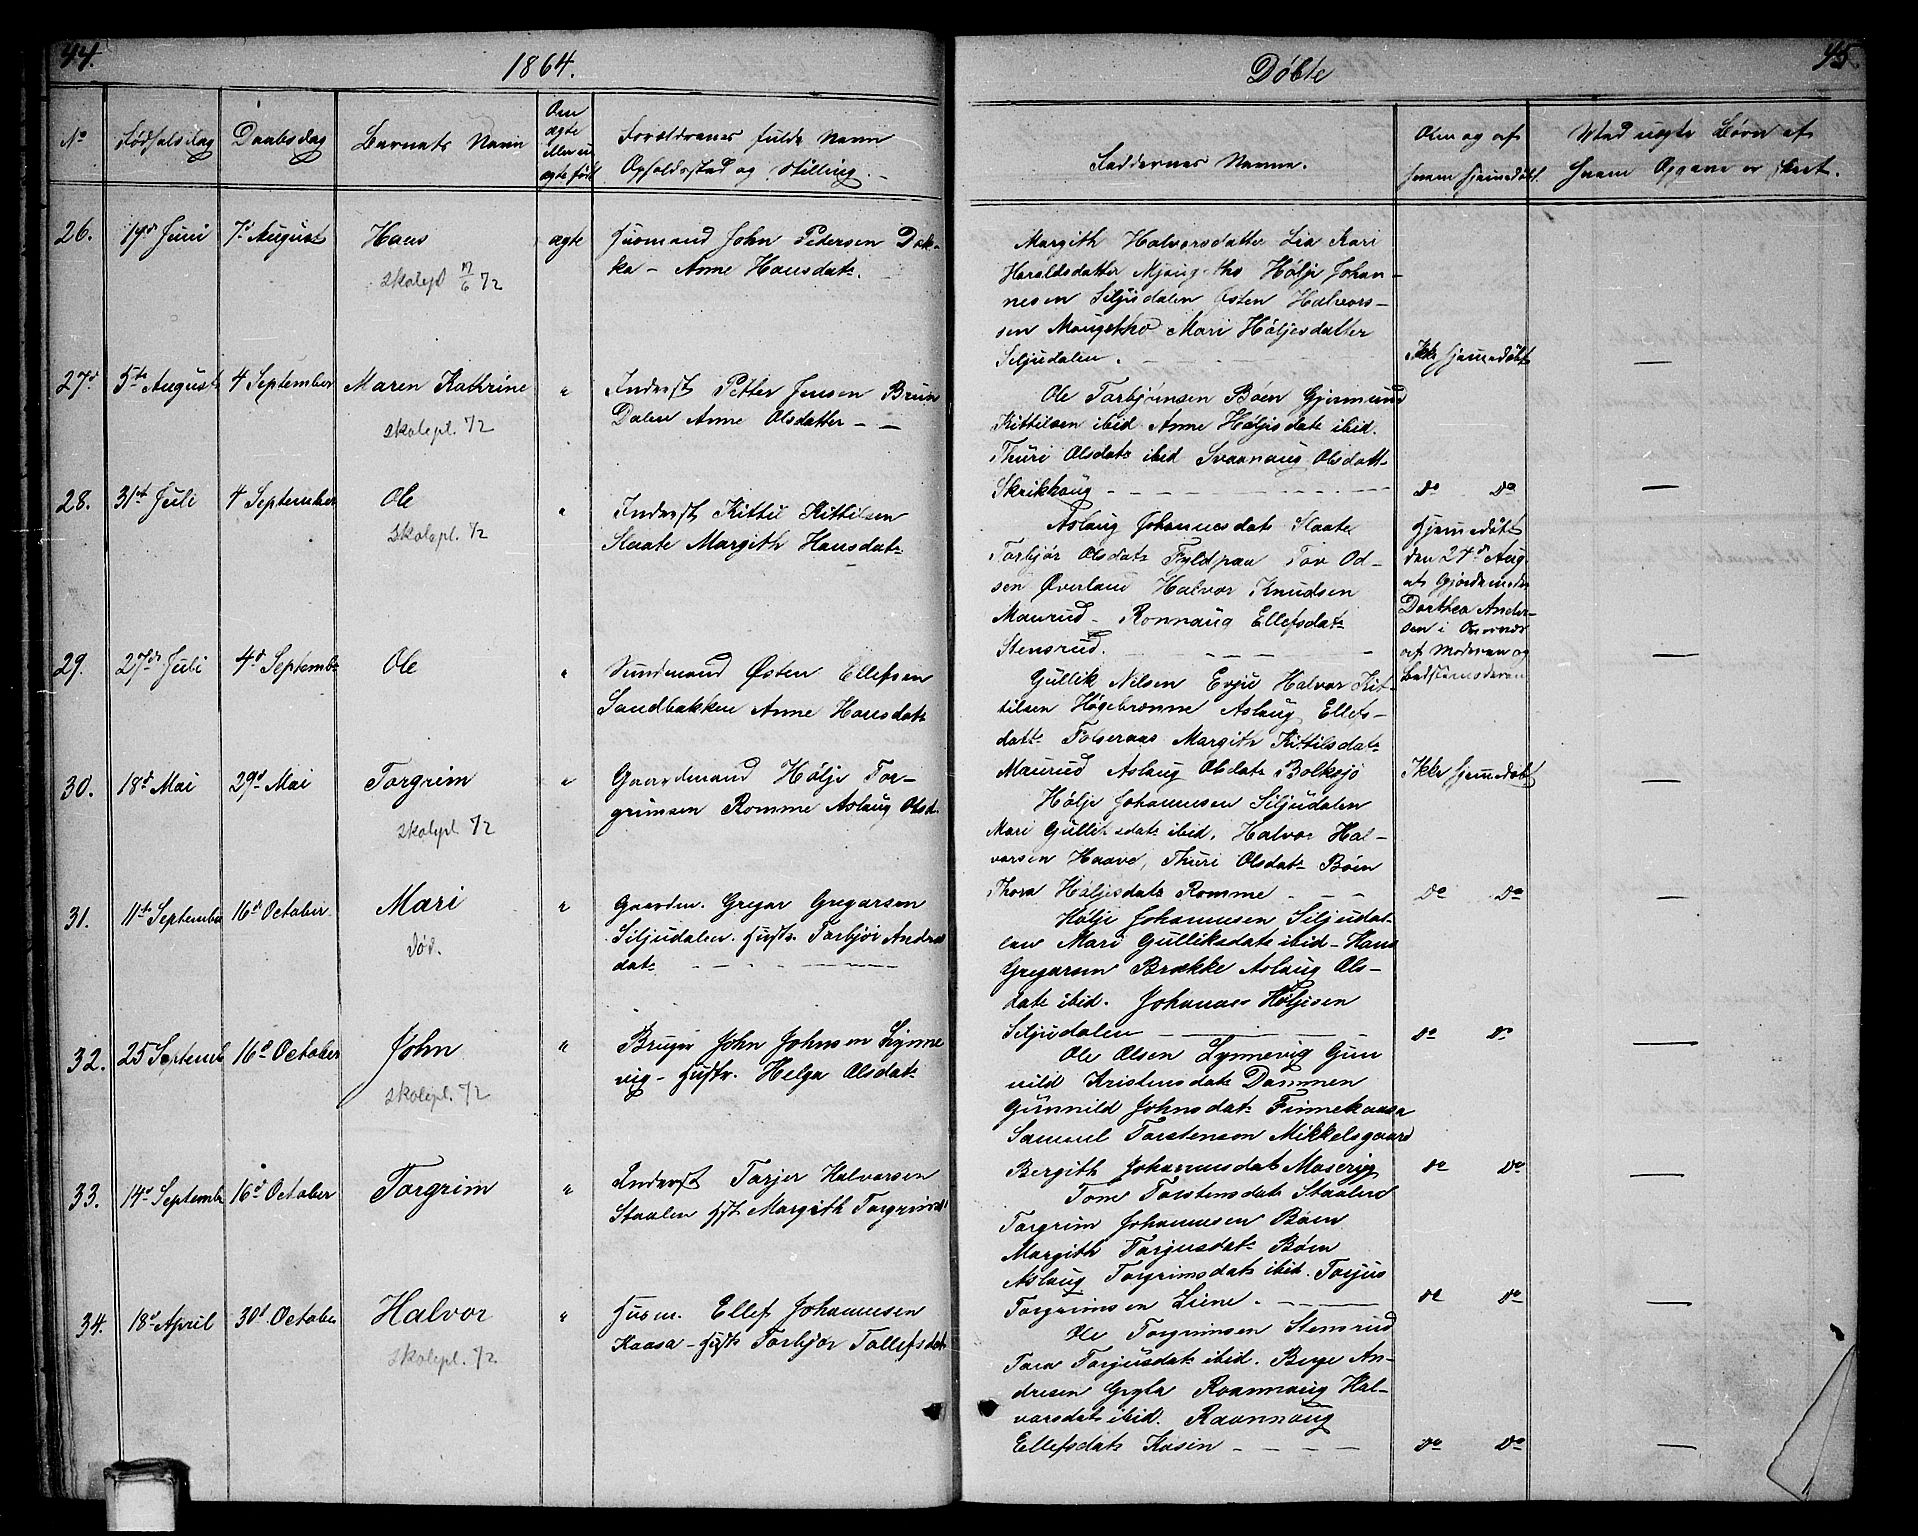 44.
1864.
No
Fødselsdag
Daabsdag
Barnets Navn
Om
ægte
eller u-
ægte født
Forældrenes fulde Navn
Opholdssted og Stilling.
26.
19d Juni
7de August
Hans
skolepl 17/6 72
ægte
Huusmand John Pedersen Dok-
ka - Anne Hansdatr
27d
5te August
4 September
Maren Kathrine
skolepl. 72
"
Inderst Petter Jensen Bruun
Dalen Anne Olsdatter - -
28.
31te Juli
4 September
Ole
skolepl. 72
"
Inderst Kittil Kittilsen
Slaate Margith Hansdatr
29.
27de Juli
4d Septembr
Ole
"
Sundmand Østen Ellefsen
Sandbakken Anne Hansdatr
30.
18d Mai
29d Mai
Torgrim
skolepl 72
"
Gaardmand Hølje Tor-
grimsen Romme Aslaug Olsd.
31.
11te September
16d October
Mari
død.
"
Gaardm. Gregar Gregarsen
Siljudalen. Hustr. Torbjør Andrea
datr
32.
25 Septemb
16d October
John
skolepl. 72
"
Bruger John Johnsen Lynne
vig - Hustr. Helga Olsdatr
33.
14d Septemb
16d October
Torgrim
"
Inderst Torjer Halvorsen
Staalen Hst Margith Torgrimsd
34.
18d April
30d October
Halvor
skolepl. 72
"
Husm. Ellef Johannesen
Kaasa - Hustr Torbjør Tollefsdatr
Døbte
45.
Faddernes Navne.
Om og af
hvem hjemmedøbt.
Ved uægte Børn af
hvem Opgave er skeet.
Margith Halvorsdatter Lia Kari
Haraldsdatter Mjaugetho Hølje Johan-
nesen Siljudalen Østen Halvors-
sen Maugetho Mari Høljesdatter
Siljudalen.
Ikke hjemmedøbt
—
Ole Torbjørnsen Bøen Gjermund
Kittilsen ibid Anne Høljesdatr ibid.
Thuri Olsdatr ibid Svaanaug Olsdatt-
Skrikhaug
do do
—
Aslaug Johannesdatr Slaate
Torbjør Olsdatr Fyldpaa Tov Od-
sen Øverland Halvor Knudsen
Maurud - Ronnaug Ellefsdatr
Stensrud.
Hjemmedøbt
den 24d Aug.
at Gjordemoder
Dorthea Ander-
sen i
af Moderen og
Bedstemoderen
—
Gullik Nilsen Evju Halvor Kit-
tilsen Høgebrænne Aslaug Ellefs-
datr Folseraas Margith Kittilsdatr
Maurud Aslaug Olsdatr Bolksjø
Ikke hjemmedøbt
—
Hølje Johannesen Siljudalen
Mari Gulliksdatr ibid. Halvor Hal-
vorsen Haave, Thuri Olsdatr Bøen
Thora Høljesdatr Romme
do do
—
Hølje Johannesen Siljudal-
len Mari Gulliksdatr ibid - Hans
Gregarsen Brække Aslaug Ols-
datr ibid. Johannes Høljesen
Siljudalen
do do
—
Ole Olsen Lynnevig Gun
nild Kristensdatr Dammen
Gunnild Johnsdatr Finnekaasa
Samuel Torstensen Mikkelsgaard
Bergith Johannesdatr Moserygg
do do
—
Tone Torstensdatr Staalen
Torgrim Johannesen Bøen
Margith Torjusdatr Bøen
Aslaug Torgrimsdatr ibid. Torjus
Torgrimsen Liene.
do do
—
Ole Torgrimsen Stensrud
Tora Torjusdatr ibid. Børge An-
dresen Gryla Roannaug Hal-
vorsdatr ibid. Raannaug
Ellefsdatr Kåsin
do do
—